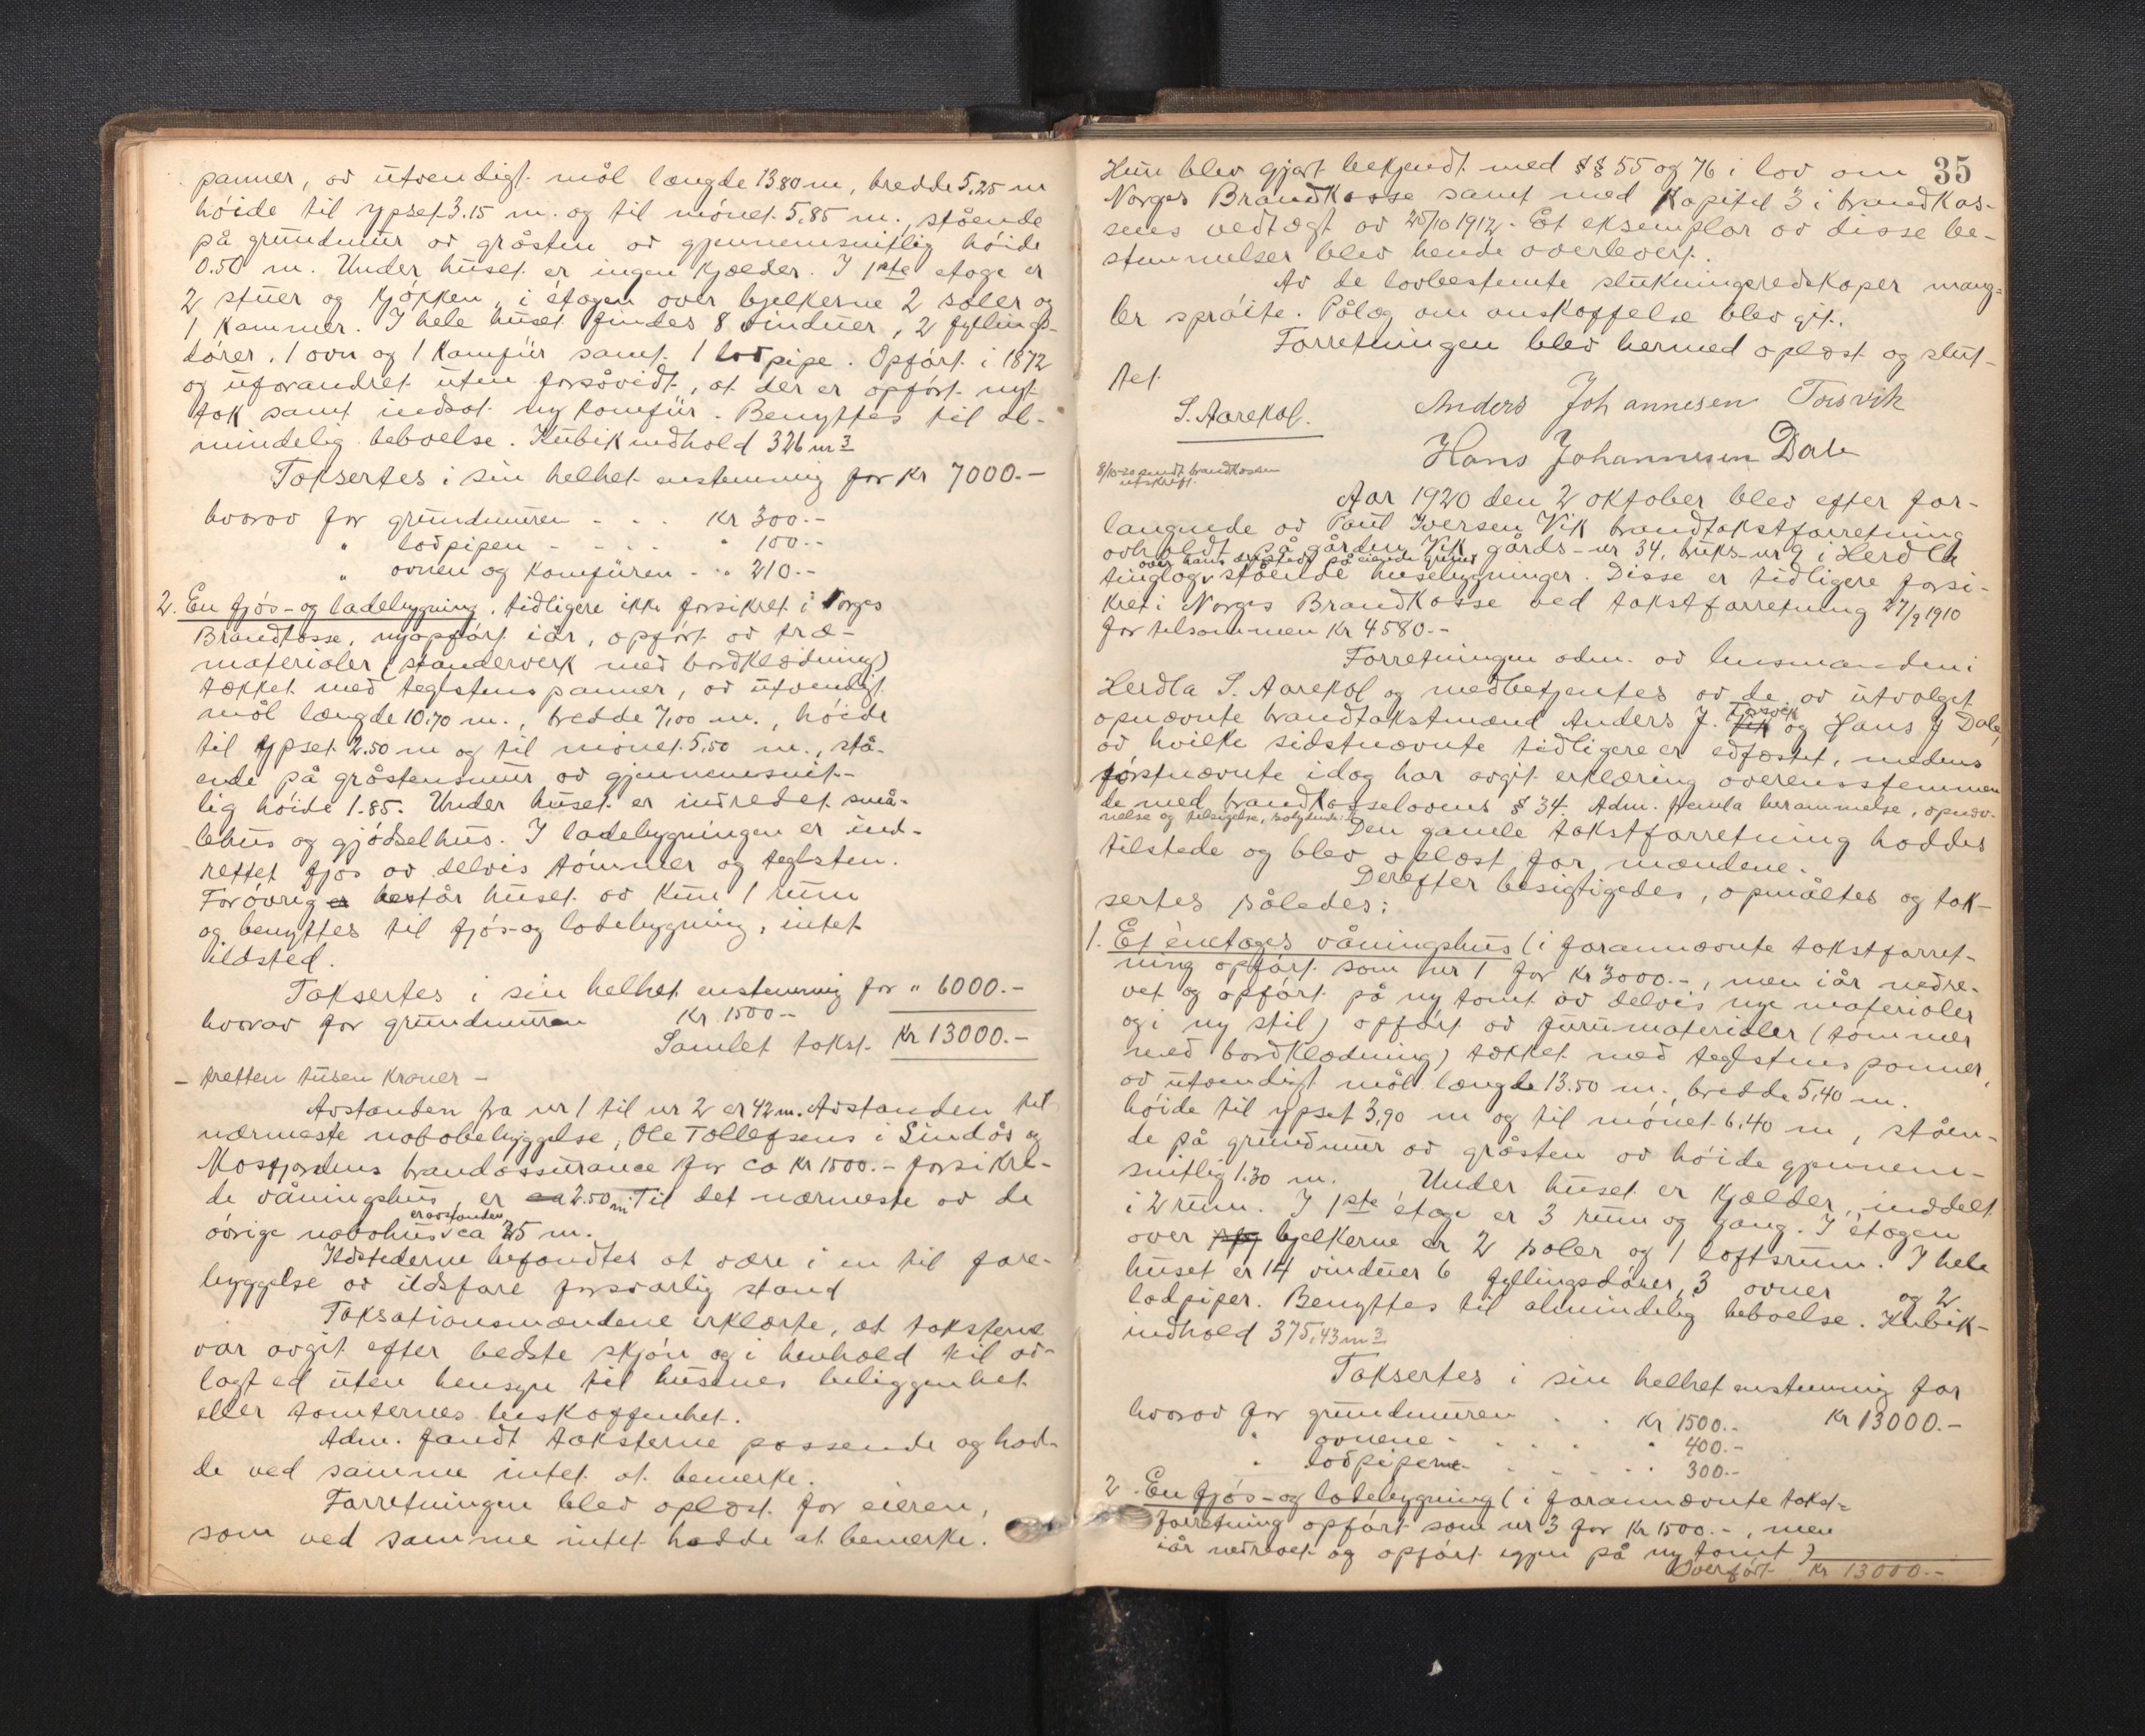 panner, av utvendigt mål længde 13.80 m, bredde 5,25 m
høide til ypset 3.15 m. og til mønet 5.85 m., stående
på grundmur av gråsten av gjennemsnitlig høide
0.50 m. Under huset er ingen kjælder. I 1ste etage er
2 stuer og kjøkken, i etagen over bjelkerne 2 saler og
1 kammer. I hele huset findes 8 vinduer, 2 fyllings-
dører, 1 ovn og 1 Komfur samt 1 lodpipe. Opført i 1872
og uforandret uten forsåvidt, at der er opført nyt
tak samt indsat ny komfur. Benyttes til al-
mindelig beboelse. Kubikindhold 326 m3
Taksertes i sin helhet enstemmig for kr 7000.-
hvorav for grundmuren - . . kr 300.-
" lodpipen - - . . " 100.-
" ovnen og Komfuren - . " 210.-
2. En fjøs- og ladebygning, tidligere ikke forsikret i Norges
Brandkasse, nyopført iår, opført av træ-
materialer (standerverk med bordklædning)
tækket med teglstens panner, av utvendigt
mål længde 10.70 m., bredde 7,00 m., høide
til ypset 2.50 m og til mønet 5,50 m., stå-
ende på gråstensmur av gjennemsnit-
lig høide 1.85. Under huset er indredet små-
lehus og gjødselhus. I ladebygningen er ind-
rettet fjøs av delvis tømmer og teglsten.
Forøvrig er består huset av kun 1 rum
og benyttes til fjøs- og ladebygning, intet
ildsted.
Taksertes i sin helhet enstemmig for " 6000.-
hvorav for grundmuren kr 1500.-
Samlet takst kr 13000.-
- tretten tusen kroner -
Avstanden fra nr 1 til nr 2 er 42 m. Avstanden til
nærmeste nabobebyggelse, Ole Tollefsens i Lindås og
Mosfjordens brandassurance for ca kr 1500.- forsikre-
de våningshus, er ca 2.50 m. Til det nærmeste av de
øvrige nabohus er avstanden ca 25 m.
Ildstederne befandtes at være i en til fore-
byggelse av ildsfare forsvarlig stand
Taksationsmændene erklærte, at taksterne
var avgit efter bedste skjøn og i henhold til av-
lagt ed uten hensyn til husenes beliggenhet
eller tomternes beskaffenhet.
Adm. fandt taksterne passende og had-
de ved samme intet at bemerke.
Forretningen blev oplæst for eieren,
som ved samme intet hadde at bemerke.
35
Hun blev gjort bekjendt med §§ 55 og 76 i lov om
Norges Brandkasse samt med Kapitel 3 i brandkas-
sens vedtægt av 25/10 1912. Et eksemplar av disse be-
stemmelser blev hende overlevert.
Av de lovbestemte slukningsredskaper mang-
ler sprøite. Pålæg om anskaffelse blev git.
Forretningen blev hermed oplæst og slut-
tet.
S. Aarekol. Anders Johannesen Torsvik
Hans Johannesen Dale
8/10-20 sendt brandkassen
utskrift.
Aar 1920 den 2 oktober blev efter for-
langende av Paul Iversen Vik brandtakstforretning
avholdt på gården Vik gårds-nr 34, bruks-nr 9 i Herdla
tinglag over hans sammesteds på eiendes grund stående husebygninger. Disse er tidligere forsi-
kret i Norges Brandkasse ved takstforretning 27/9 1910
for tilsammen kr 4580.-
Forretningen adm. av lensmanden i
Herdla S. Aarekol og medbetjentes av de av utvalget
opnævnte brandtakstmænd Anders J. Vik Torsvik og Hans J Dale,
av hvilke sidstnævnte tidligere er edfæstet, medens
førstnævnte idag har avgit erklæring overensstemmen-
de med brandkasselovens § 34. Adm. fremla berammelse, opnæv-
nelse og tilsigelse,
Den gamle takstforretning haddes
tilstede og blev oplæst for mændene.
Derefter besigtigedes, opmåltes og tak-
sertes således:
1. Et énetages våningshus (i forannævnte takstforret-
ning opført som nr 1 for kr 3000.-, men iår nedre-
vet og opført på ny tomt av delvis nye materialer
og i ny stil) opført av furumaterialer (tømmer
med bordklædning) tækket med teglstens panner,
av utvendigt mål længde 13.50 m., bredde 5,40 m.
høide til ypset 3,90 m og til mønet 6,40 m, ståen-
de på grundmur av gråsten av høide gjennem-
snitlig 1.30 m. Under huset er kjælder, inddelt
i 2 rum. I 1ste étage er 3 rum og gang. I étagen
over bjelkerne er 2 saler og 1 loftsrum. I hele
huset er 14 vinduer 6 fyllingsdører, 3 ovner og 2
lodpiper. Benyttes til almindelig beboelse. Kubik-
indhold 375,43 m3
Taksertes i sin helhet enstemmig for
hvorav for grundmuren . . kr 1500.- kr 13000.-
" ovnene - . . . " 400.-
" lodpiperne . . . . " 300.-
2. En fjøs- og ladebygning (i forannævnte takst-
forretning opført som nr 3 for kr 1500.-, men
iår nedrevet og opført igjen på ny tomt)
Overført kr 13000.-